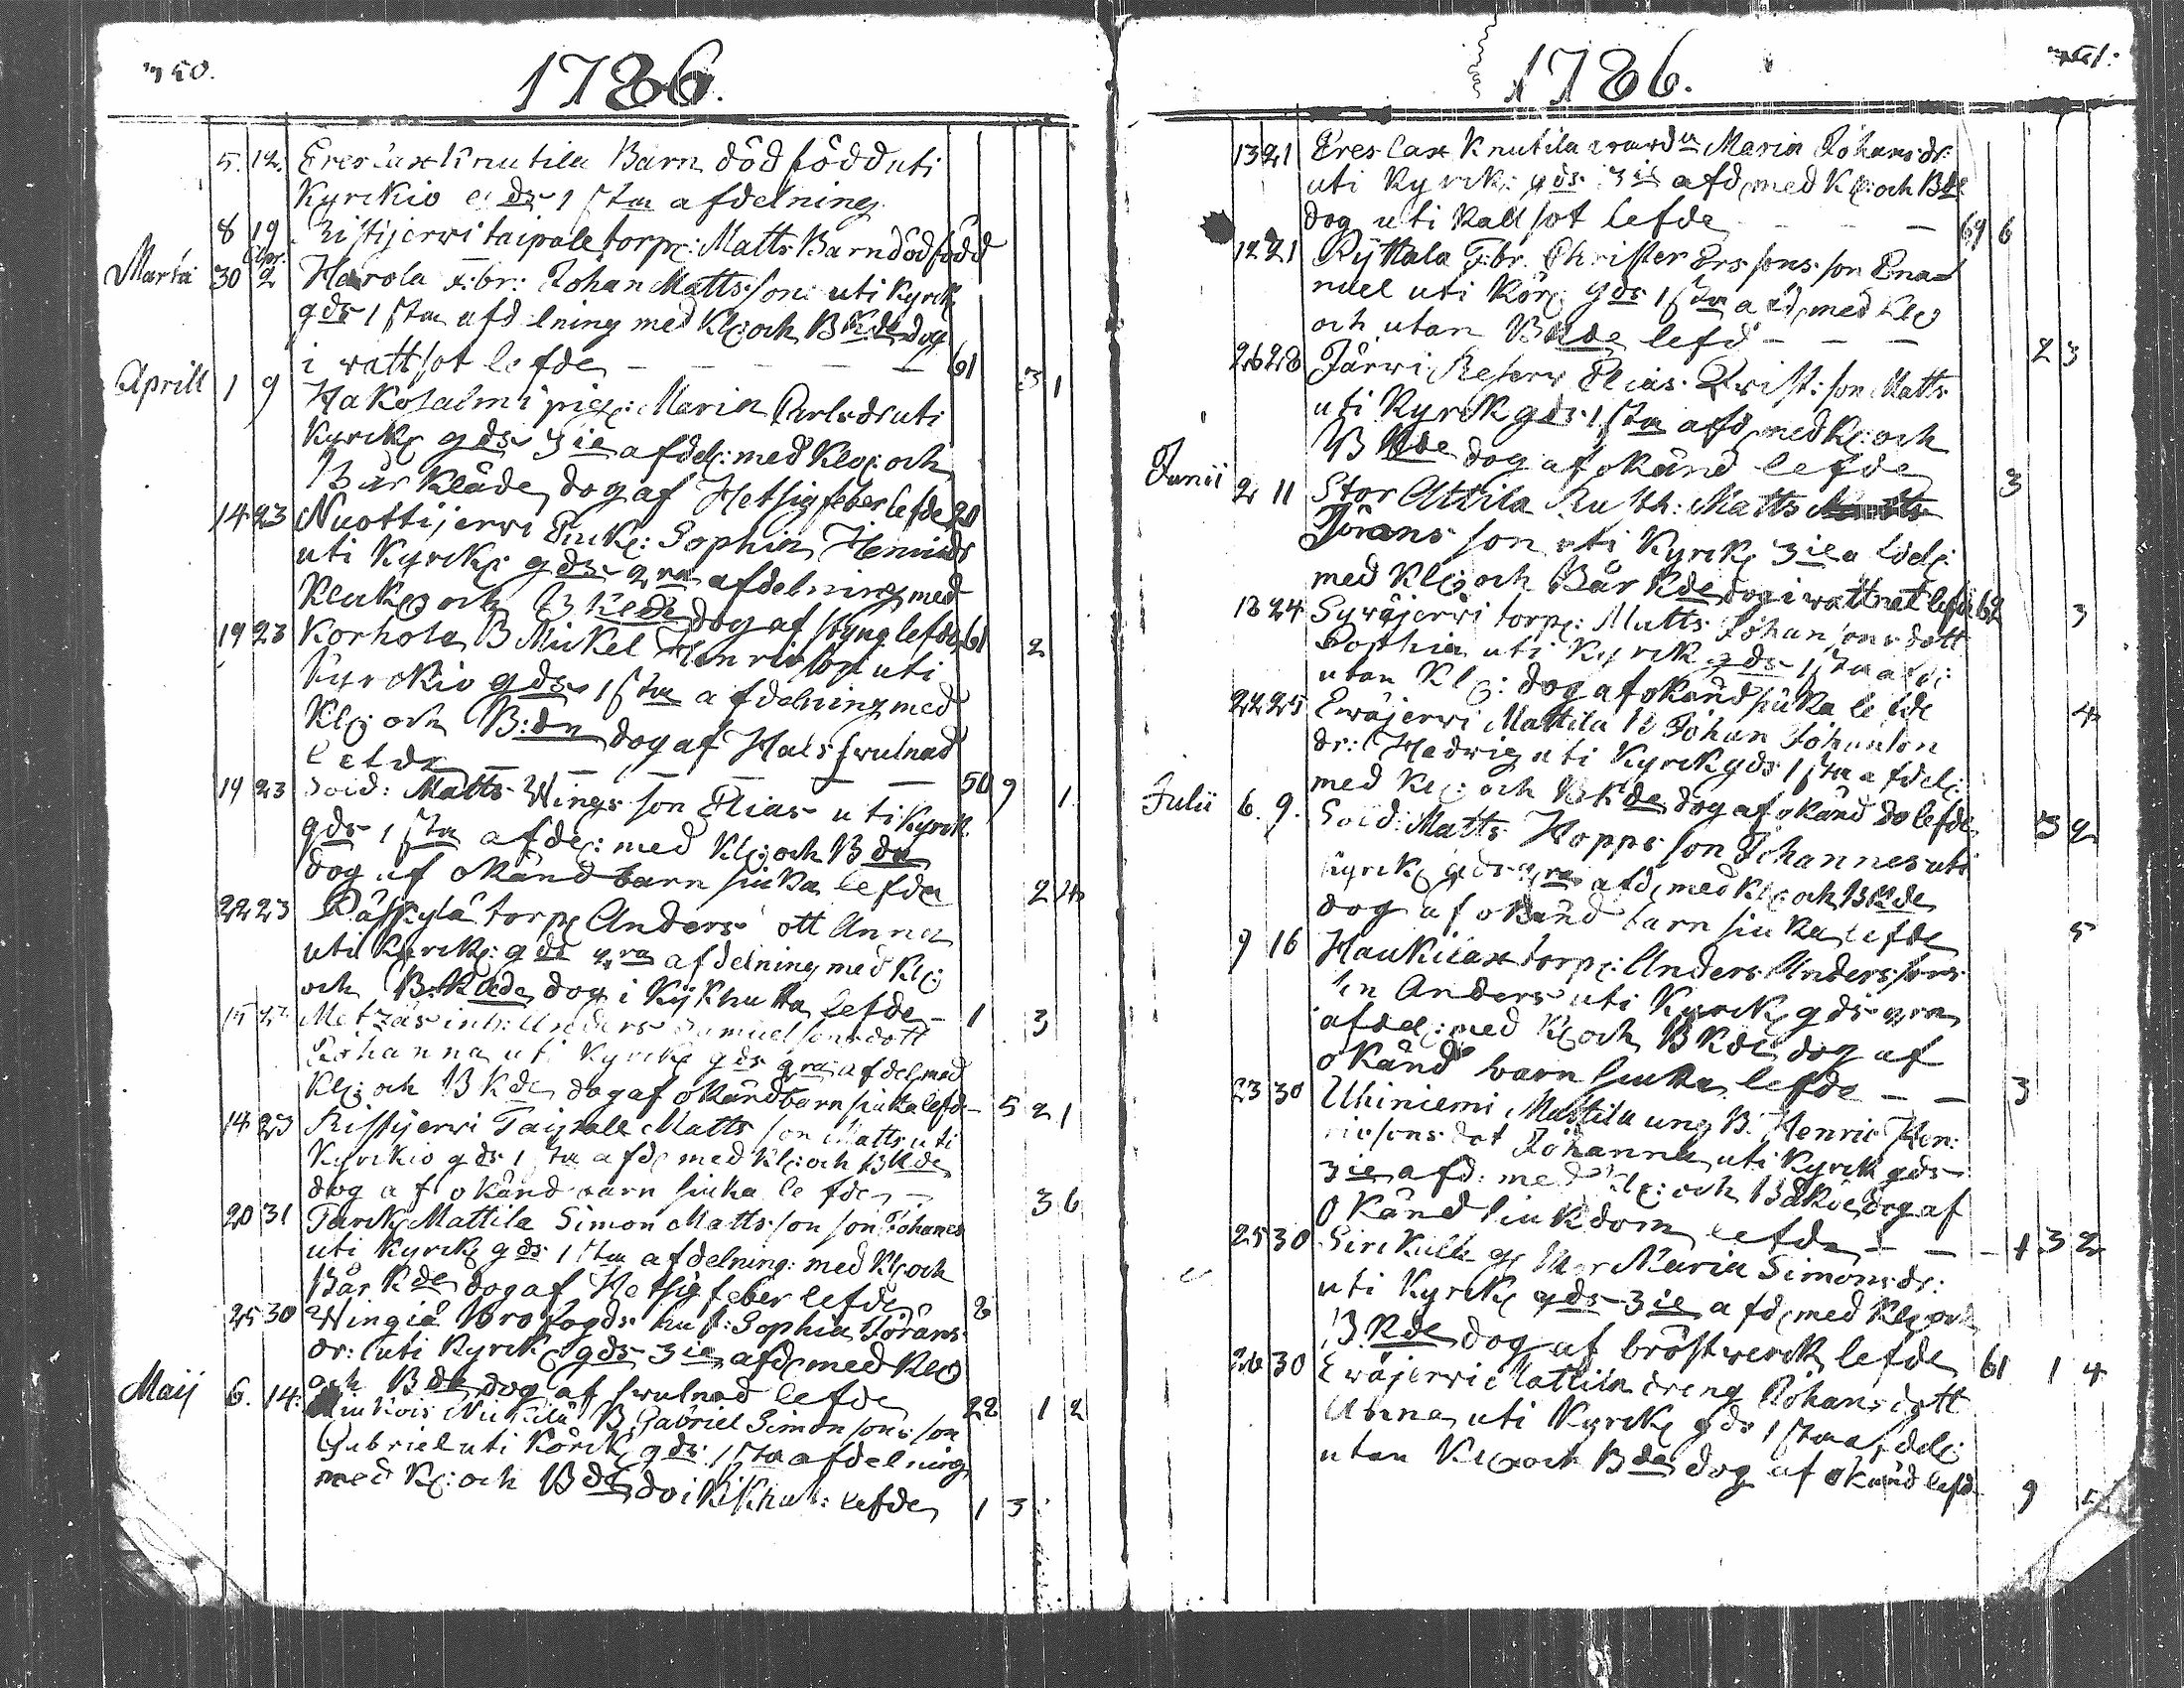 350.
1786.
5. 12. Ererlax Knutila Barn död född uti
Kyrckio gds 1 sta afdelning
8 19 Ristijerwi taipale torp: Matts Barn död född
Martii 30 Apr. 2 Harola F:br: Johan Mattsson uti Kyrck
gds 1 sta afdelning med Kl: och B Kde dog
i wattsot lefde 61 3 1
Aprill 1 9 Hakosalmi pig: Maria Carlsdr uti
Kyrck gds 3 ie afdel: med Klo: och
Bår Kläde dog af Hetsig feber lefde 20
14 23 Nuottijerwi Enk: Sophia Henricdr
uti Kyrck: gds 2 ra afdelning med
Klock och B Klde dog af styng lefde 61 2
19 23 Korhola B Mickel Henricsson uti
Kyrckio gds 1 sta afdelning med
Kl: och B:de dog af Hals swulnad
lefde 50 9 1
19 23 Sold: Matts Wings son Elias uti Kyrck
gds 1 sta afde: med Kl: och B de
dog af okänd barn siuka lefde 2 4
22 23 torp Anders dott Anna
uti Kyrck: gds 2 ra afdelning med Kl:
och B:Klde dog i Kijkhusta lefde 1 3
15 23 Metzäs inh: Anders Samuelsons dott
Johanna uti Kyrck gds 2 ra afdel med
Kl: och B Kde dog af okänd barn siuka lefde 5 2 1
14 23 Ristijerwi Taipale Matts son Matts uti
Kyrckio gds 1 sta afd med Kl: och B Kde
dog af okänd barn siuka lefde 3 6
20 31 Turck Mattila Simon Matts son son Johanes
uti Kyrck gds 1 sta afdelning: med Kl: och
Bår Kde dog af Hetsig feber lefde 8
25 30 Wingiä Brofogds hust: Sophia Jörans
dr: uti Kyrck gds 3 ie afd med Klo
och B de dog af swulnad lefde 22 1 2
Maij 6. 14. B Gabriel Simonsons son
Gabriel uti Körck gds: 1 sta afdelning
med Kl: och B de do i Kikhus: lefde 1 3
1786.
13 21 Ererlax Knutila Maria Johansdr:
uti Kyrck: gds 3 ie afd med Kl: och B de
dog uti Kallsot lefde 69 6
12 21 Ryttala F:br. Christer Ers sons son Ema
nuel uti Kör gds 1 sta afd med Klo
och utan B Kde lefd 2 3
26 28 Järwi Reserw Elias Qwist: son Matts
uti Kyrck gds: 1 sta afd med Kl: och
B Kde dog af okänd lefde 3
Junii 2 11 Stor Attila Rusth: Matts
Jörans son uti Kyrck 3 ie afdel:
med Kl: och Bår Kde dog i wattnet lefde 62 3
18 24 Sywäjerwi torp: Matts Johansons dott
Sophia uti Kyrck gds 1 sta afd:
utan Kl: dog af okänd siuka lefde 4
22 25 Ewäjerwi Mattila B Johan Johanson
dr: Hedwig uti Kyrck gds 1 sta afdel:
med Kl: och B Kde dog af okänd do lefde 3 2
Julii 6. 9. Sold: Matts Hopps son Johannes uti
Kyrck gds 2 ra afd med Kl: och B Kde
dog af okänd barn siuka lefde 5
9 16 Haukilax torp: Anders Anderssons
son Anders uti Kyrck gds 2 ra
afdel: med Kl och B Kde dog af
okänd barn siuka lefde 3
23 30 Uhiniemi Mattila ung B. Henric Hen:
ricsons dot Johanna uti Kyrck gds
3 ie afd: med Kl: och BåKde dog af
Okänd siukdom lefde 1 3 2
25 30 Sirckull g Mor Maria Simonsdr:
uti Kyrck gds 3 ie afd med Kl: och
B. Kde dog af bröstwerck lefde 61 1 4
26 30 Ewäjerwi Mattila dreng Johans dott
Anna uti Kyrck gds 1 sta afdel:
utan Kl och B de dog af okänd lefd 9 5